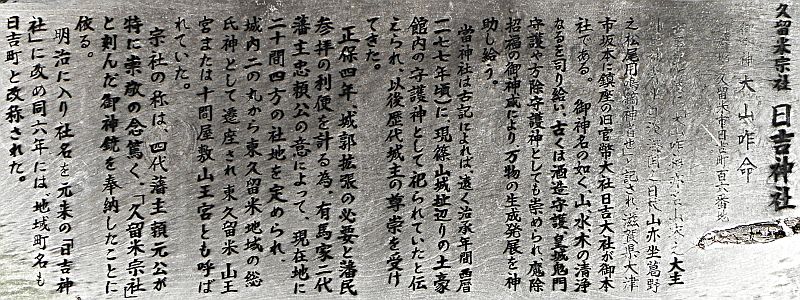 久留米宗社 日吉神社
大山咋命
久留米市日吉町百六番地
大主
之松尾用鳴鏑神者也と記され、滋賀県大津
市坂本に鎮座の旧官幣大社日吉大社が御本
社である。御神名の如く、山、水、木の清浄
なるを司り給い、古くは酒造守護、皇城鬼門
守護や方除守護神としても崇められ、魔除
招福の御神威により、万物の生成発展を神
助し給う。
当神社は古記によれば、遠く治承年間(西暦
一一七七年頃)に、現篠山城址辺りの土豪
館内の守護神として祀られていたと伝
えられ、以後歴代城主の尊崇を受け
てきた。
正保四年、城郭拡張の必要と藩民
参拝の利便を計る為、有馬家二代
藩主忠頼公の意によって、現在地に
二十間四方の社地を定められ、
城内二の丸から東久留米地域の総
氏神として造座され、東久留米山王
宮または十間屋敷山王宮とも呼ば
れていた。
宗社の称は、四代藩主頼元公が
特に崇敬の念篤く、「久留米宗社」
と刻んだ御神鏡を奉納したことに
依る。
明治に入り社名を元来の「日吉神
社」に改め同六年には、地域町名も
日吉町と改称された。